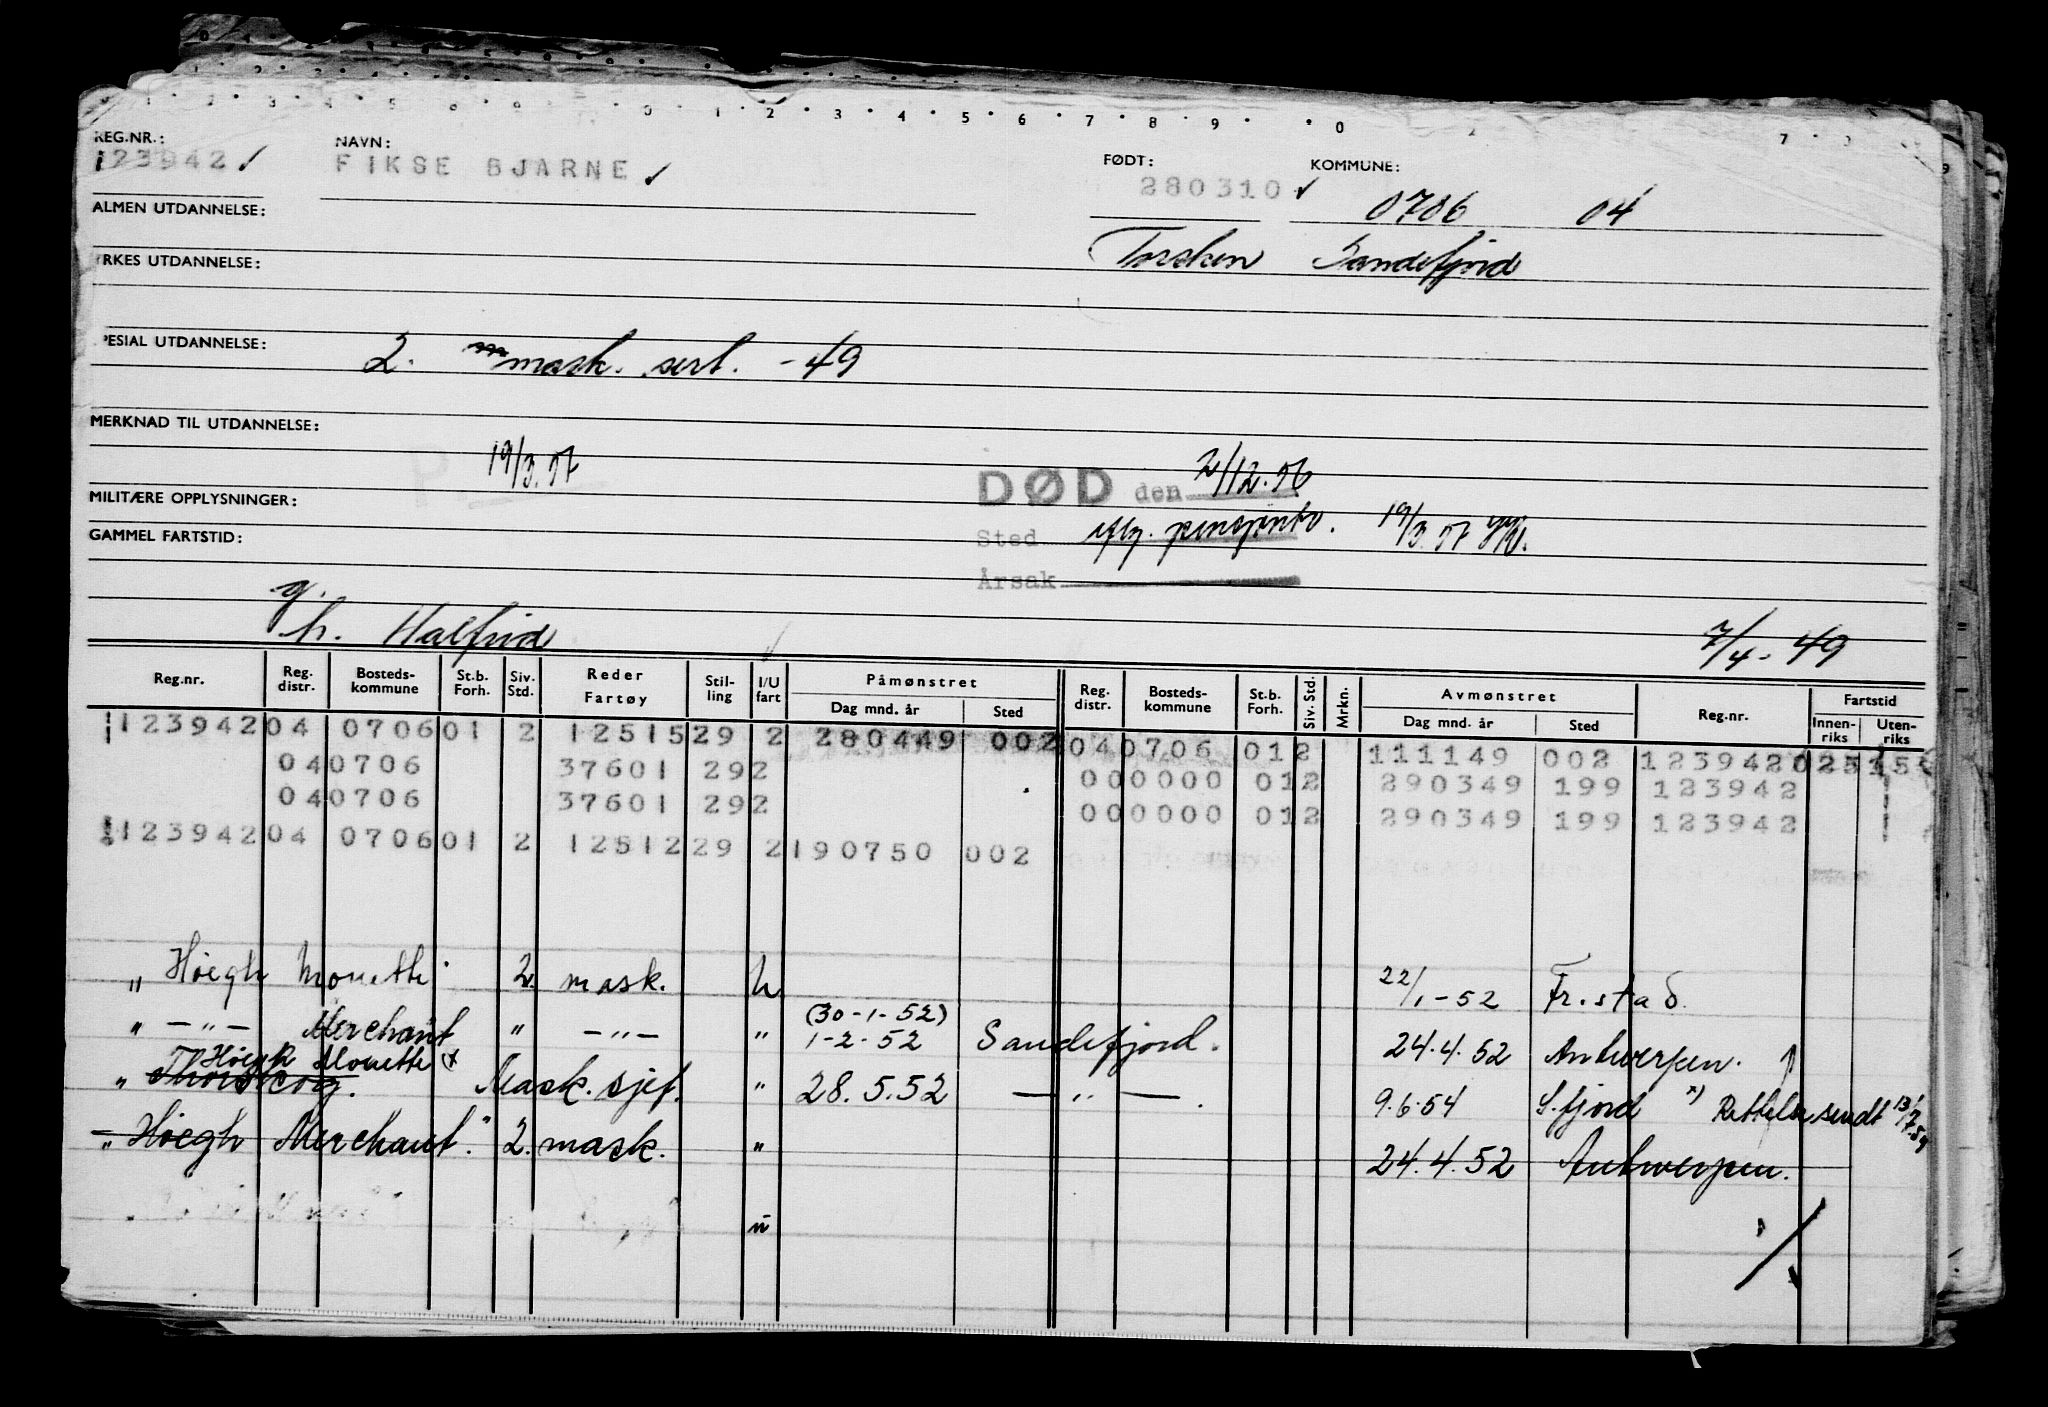 REG.NR.: NAVN: FØDT: KOMMUNE:
123942 ✓ FIKSE BJARNE ✓ 280310 ✓ 0706 04
ALMEN UTDANNELSE:
Torsken Sandefjord
YRKES UTDANNELSE:
SPESIAL UTDANNELSE: 2. mask. sert. -49
MERKNAD TIL UTDANNELSE:
P 19/3.57 DØD den 2/12.56
MILITÆRE OPPLYSNINGER:
Sted iflg. 19/3.57
GAMMEL FARTSTID:
Årsak
g.
h. Halfrid 7/4-49
Reg.nr. Reg. distr. Bosteds-kommune St.b. Forh. Siv. Std. Reder Fartøy Stil-ling I/U fart Påmønstret Dag mnd. år Sted Reg. distr. Bosteds-kommune St.b. Forh. Siv. Std. Mrkn. Avmønstret Dag mnd. år Sted Reg.nr. Fartstid Innen-riks Uten-riks
123942 04 0706 01 2 12515 29 2 280449 002 04 0706 01 2 111149 002 123942 025
04 0706 37601 29 2 00 0000 01 2 290349 199 123942
04 0706 37601 29 2 00 0000 01 2 290349 199 123942
123942 04 0706 01 2 12512 29 2 190750 002
" Høegh Monette 2. mask. U 22/1-52 Fr.stad.
(30-1-52)
" —"— Merchant " —"— " 1-2.52 Sandefjord. 24.4.52 Antwerpen.
Høegh Monette
" Thorskog. Mask.sjef. " 28.5.52 —"—. 9.6.54 S.fjord x) Rettelse sendt 13/7.54
" Høegh Merchant." 2. mask. " 24.4.52 Antwerpen.